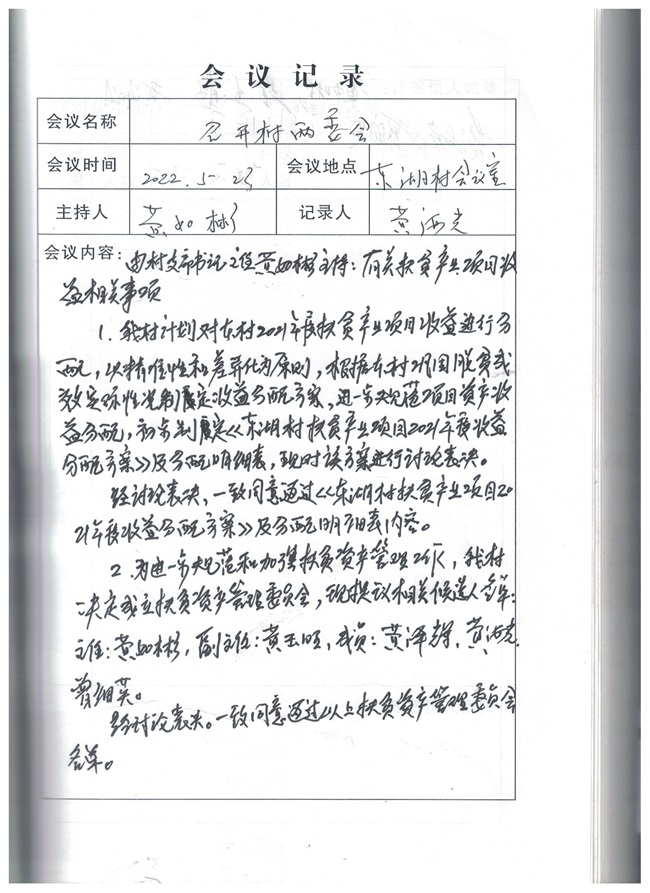 会议记录
会议名称 召开村两委会
会议时间 2022.5-23 会议地点 东湖村会议室
主持人 黄如彬 记录人 黄海光
会议内容：由村支部书记主任黄如彬主持：有关扶贫产业项目收
益相关事项
1. 我村计划对东村2021年度扶贫产业项目收益进行分
配，以精准性和差异化为原则，根据东村巩固脱贫成
效实际情况制定收益分配方案，进一步规范项目资产收
益分配，初步制定《东湖村扶贫产业项目2021年度收益
分配方案》及分配明细表，现对该方案进行讨论表决。
经讨论表决，一致同意通过《东湖村扶贫产业项目20
21年度收益分配方案》及分配明细表内容。
2. 为进一步规范和加强扶贫资产管理工作，我村
决定成立扶贫资产管理委员会，现提议相关候选人名单：
主任：黄如彬，副主任：黄玉旺，成员：黄泽群，黄海光
曾细英。
经讨论表决。一致同意通过以上扶贫资产管理委员会
名单。